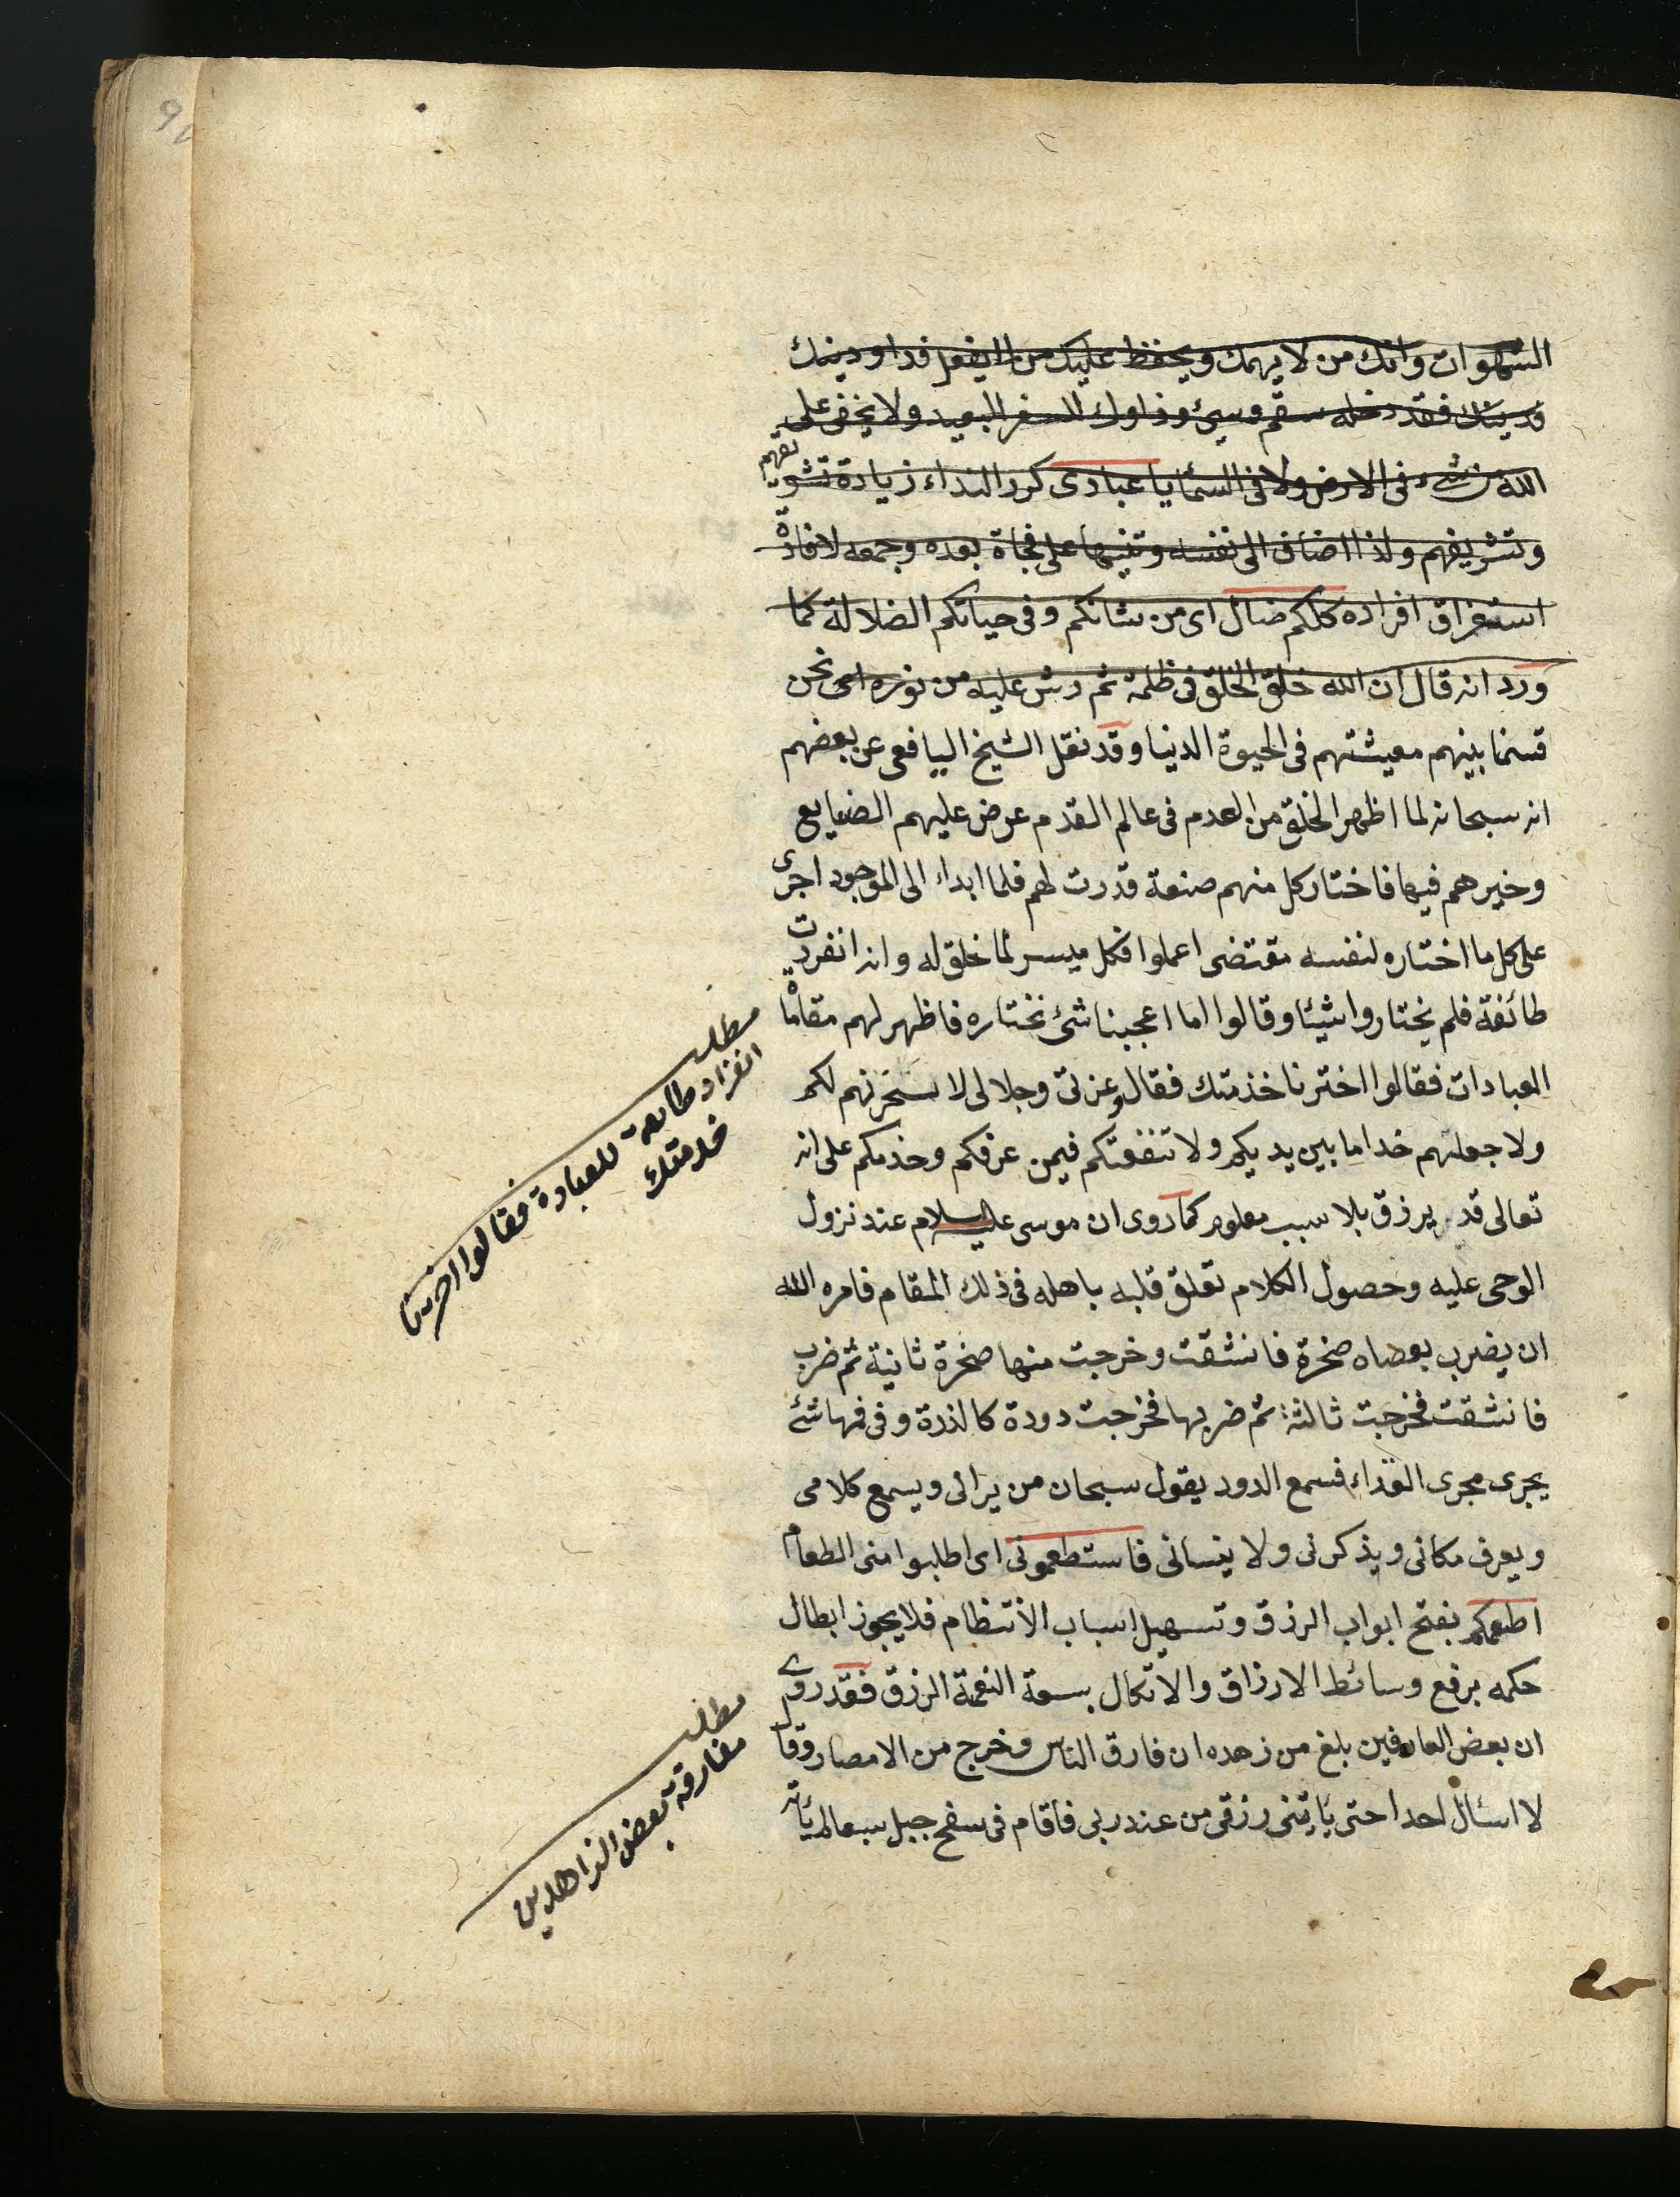 السموات وانك من لا يهمك ويحفظ عليك من الينعم فداو دينك
قدينك فقد دخله سقم وسيئ وزاولك للسفر البعيد ولا يخفى على
الله من شئ فى الارض ولا فى السما يا عبادى كرر النداء زيادة تشويقهم
وتشريفهم ولذا اضاف الى نفسه وتنبيها على فجاة بعده وجمعه لافادة
استغراق افراده كلكم ضال اى من شانكم وفى حياتكم الضلالة كما
ورد انه قال ان الله خلق الخلق فى ظلمة ثم رش عليه من نوره اى نحن
قسمنا بينهم معيشتهم فى الحيوة الدنيا وقد نقل الشيخ اليافعى عن بعضهم
انه سبحانه لما اظهر الخلق من العدم فى عالم القدم عرض عليهم الصنايع
وخيرهم فيها فاختار كل منهم صنعة قدرت لهم فلما ابداء الى الموجود اجرى
على كل ما اختاره لنفسه مقتضى اعملوا فكل ميسر لما خلق له وانه انفردت
طائفة فلم يختاروا شيئا وقالوا اما اعجبنا شئ نختاره فاظهر لهم مقاما
العبادات فقالوا اخترنا خذمتك فقال وعزتى وجلالى لا سخرنهم لكم
ولا جعلنهم خداما بين يديكم ولا تنفعتكم فيمن عرفكم وخذمكم على انه
تعالى قد يرزق بلا سبب معلوم كما روى ان موسى عليه السلام عند نزول
الوحى عليه وحصول الكلام تعلق قلبه باهله فى ذلك المقام فامره الله
ان يضرب بعصاه صخرة فانشقت وخرجت منها صخرة ثانية ثم ضرب
فانشقت فخرجت ثالثة ثم ضربها فخرجت دودة كالذرة وفى فمها شئ
يجرى مجرى الغذاء فسمع الدود يقول سبحان من يرانى ويسمع كلامى
ويعرف مكانى ويذكرنى ولا ينسانى فاستطعمونى اى اطلبوا منى الطعام
اطعمكم بفتح ابواب الرزق وتسهيل اسباب الانتظام فلا يجوز ابطال
حكمه برفع وسائط الارزاق والاتكال بسعة النعمة الرزق فقد روى
ان بعض العارفين بلغ من زهده ان فارق الناس وخرج من الامصار وقا
لا اسأل احدا حتى يأتينى رزقى من عند ربى فاقام فى سفح جبل سبعا لم يأته
مطلب
انفراد طائفة للعبادة فقالوا اخترنا
خدمتك
مطلب
مفارقة بعض الزاهدين